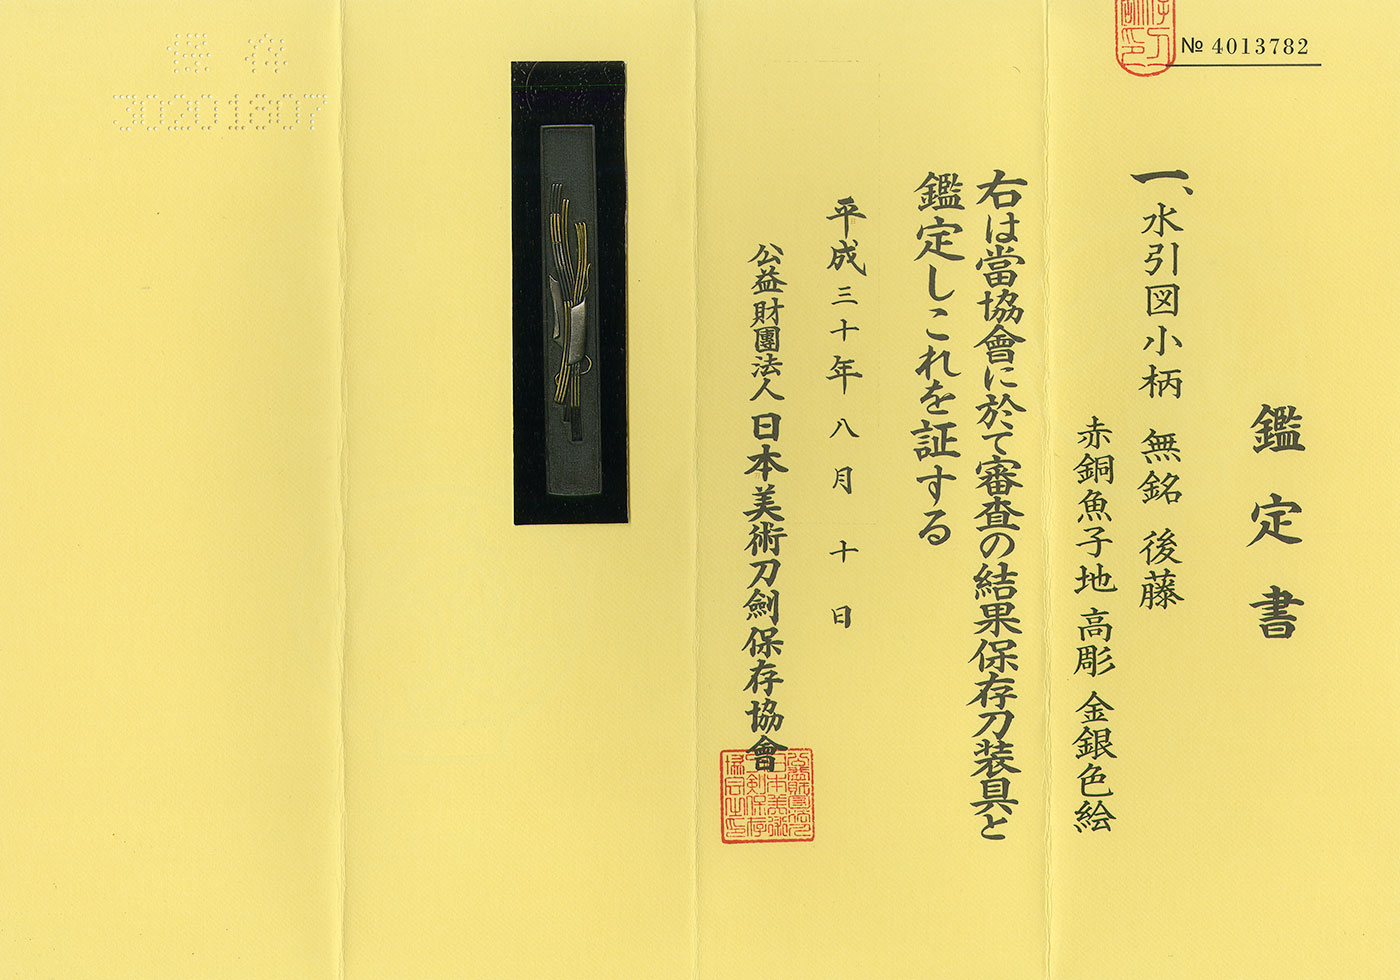 № 4013782
鑑定書
一、水引図小柄 無銘 後藤
赤銅魚子地 高彫 金銀色絵
右は當協會に於て審査の結果保存刀装具と
鑑定しこれを証する
平成三十年八月十日
公益財團法人 日本美術刀劍保存協會
保存
30201807